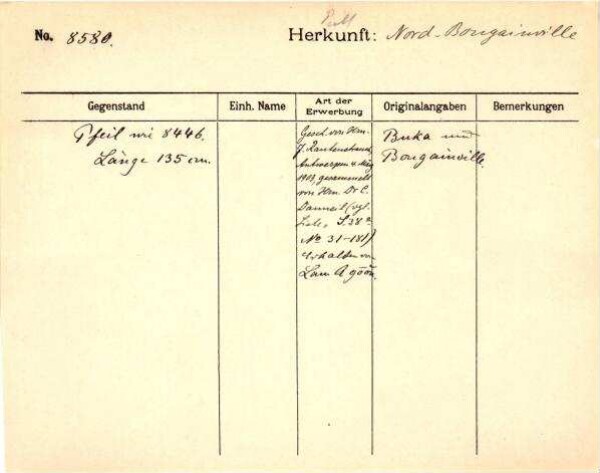 No. 8580.
Herkunft: Nord-Bougainville
Gegenstand
Einh. Name
Art der
Erwerbung
Originalangaben
Bemerkungen
Pfeil wie 8446.
Länge 135 cm.
Gesch. von Hrn.
J. Rautenstrauch,
Antwerpen 4. May
1903, gesammelt
von Hrn. Dr C.
Danneil (vgl.
S. 38a
No 31-181)
erhalten von
Lam
Buka und
Bougainville.